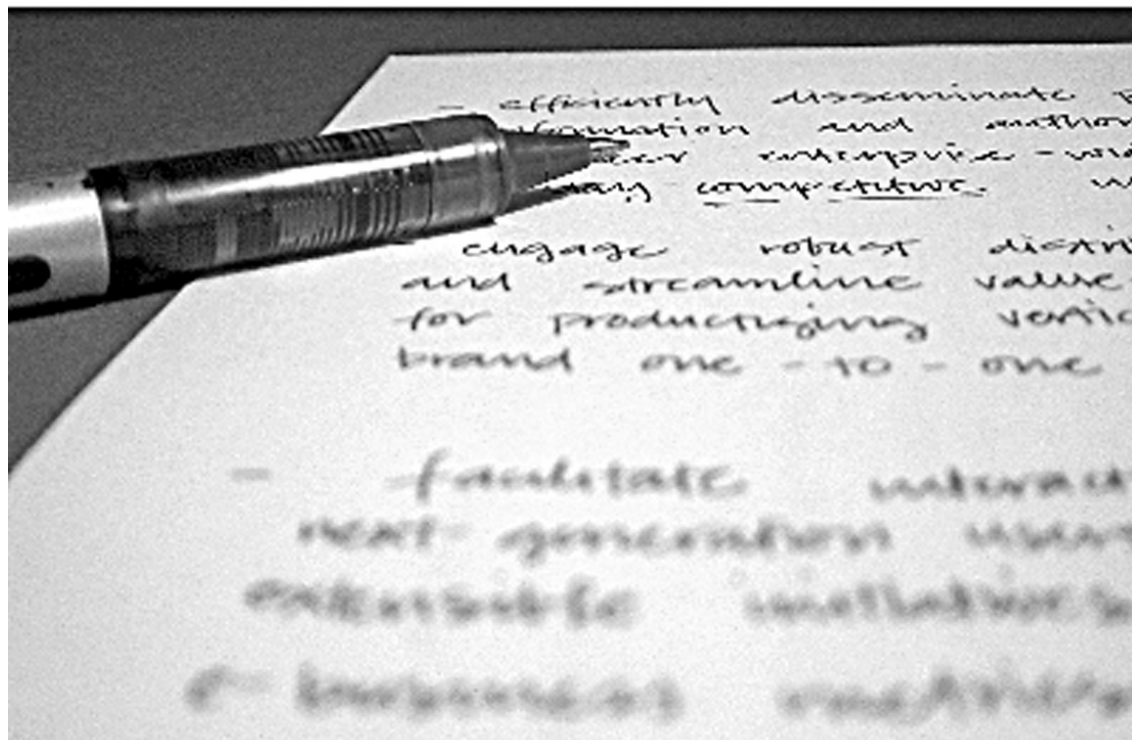 - efficiently disseminate
formation and author
enterprise-wid
competitive.
engage robust distri
and streamline value-
for productizing vertic
brand one-to-one
- facilitate interact
next-generation users
extensible initiatives
e-business metrics